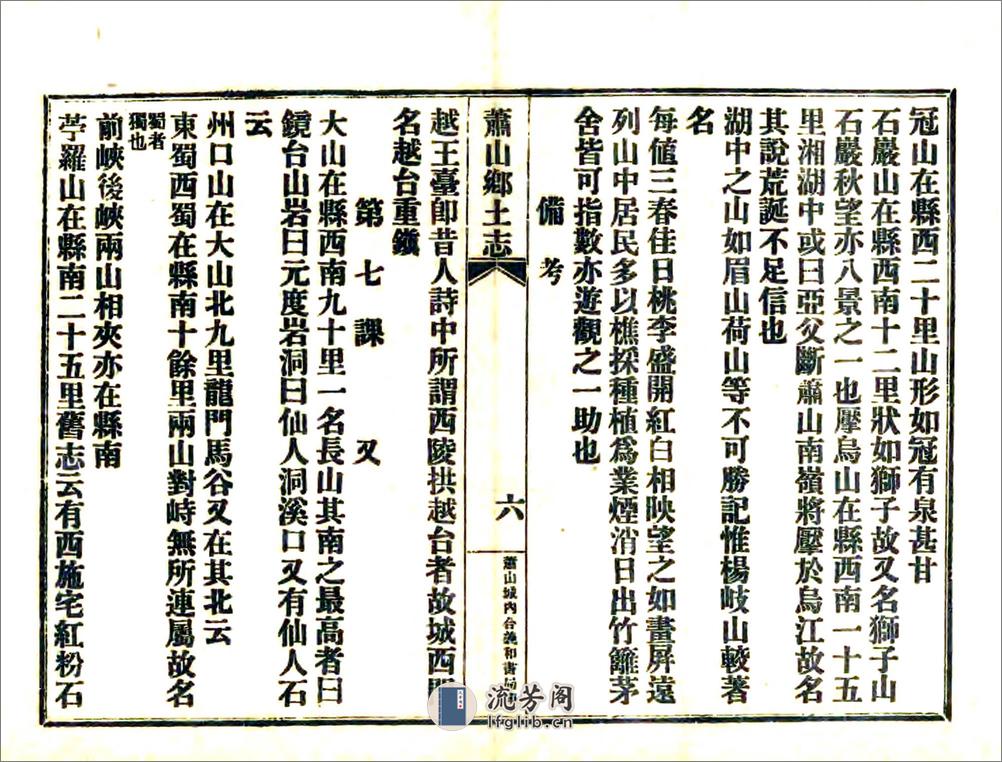 冠山在縣西二十里山形如冠有泉甚甘
石巖山在縣西南十二里狀如獅子故又名獅子山
石巖秋望亦八景之一也壓烏山在縣西南一十五
里湘湖中或曰亞父斷蕭山南嶺將壓於烏江故名
其說荒誕不足信也
湖中之山如眉山荷山等不可勝記惟楊岐山較著
名
備考
每値三春佳日桃李盛開紅白相映望之如畫屏遠
列山中居民多以樵採種植爲業煙消日出竹籬茅
舍皆可指數亦遊觀之一助也
蕭山鄉土志
六
蕭山城內合義和書局
越王臺卽昔人詩中所謂西陵拱越台者故城西門
名越台重鎭
第七課 又
大山在縣西南九十里一名長山其南之最高者曰
鏡台山岩曰元度岩洞曰仙人洞溪口又有仙人石
云
州口山在大山北九里龍門馬谷又在其北云
東蜀西蜀在縣南十餘里兩山對峙無所連屬故名
蜀者
獨也
前峽後峽兩山相夾亦在縣南
苧羅山在縣南二十五里舊志云有西施宅紅粉石
流芳阁
lfglib.cn